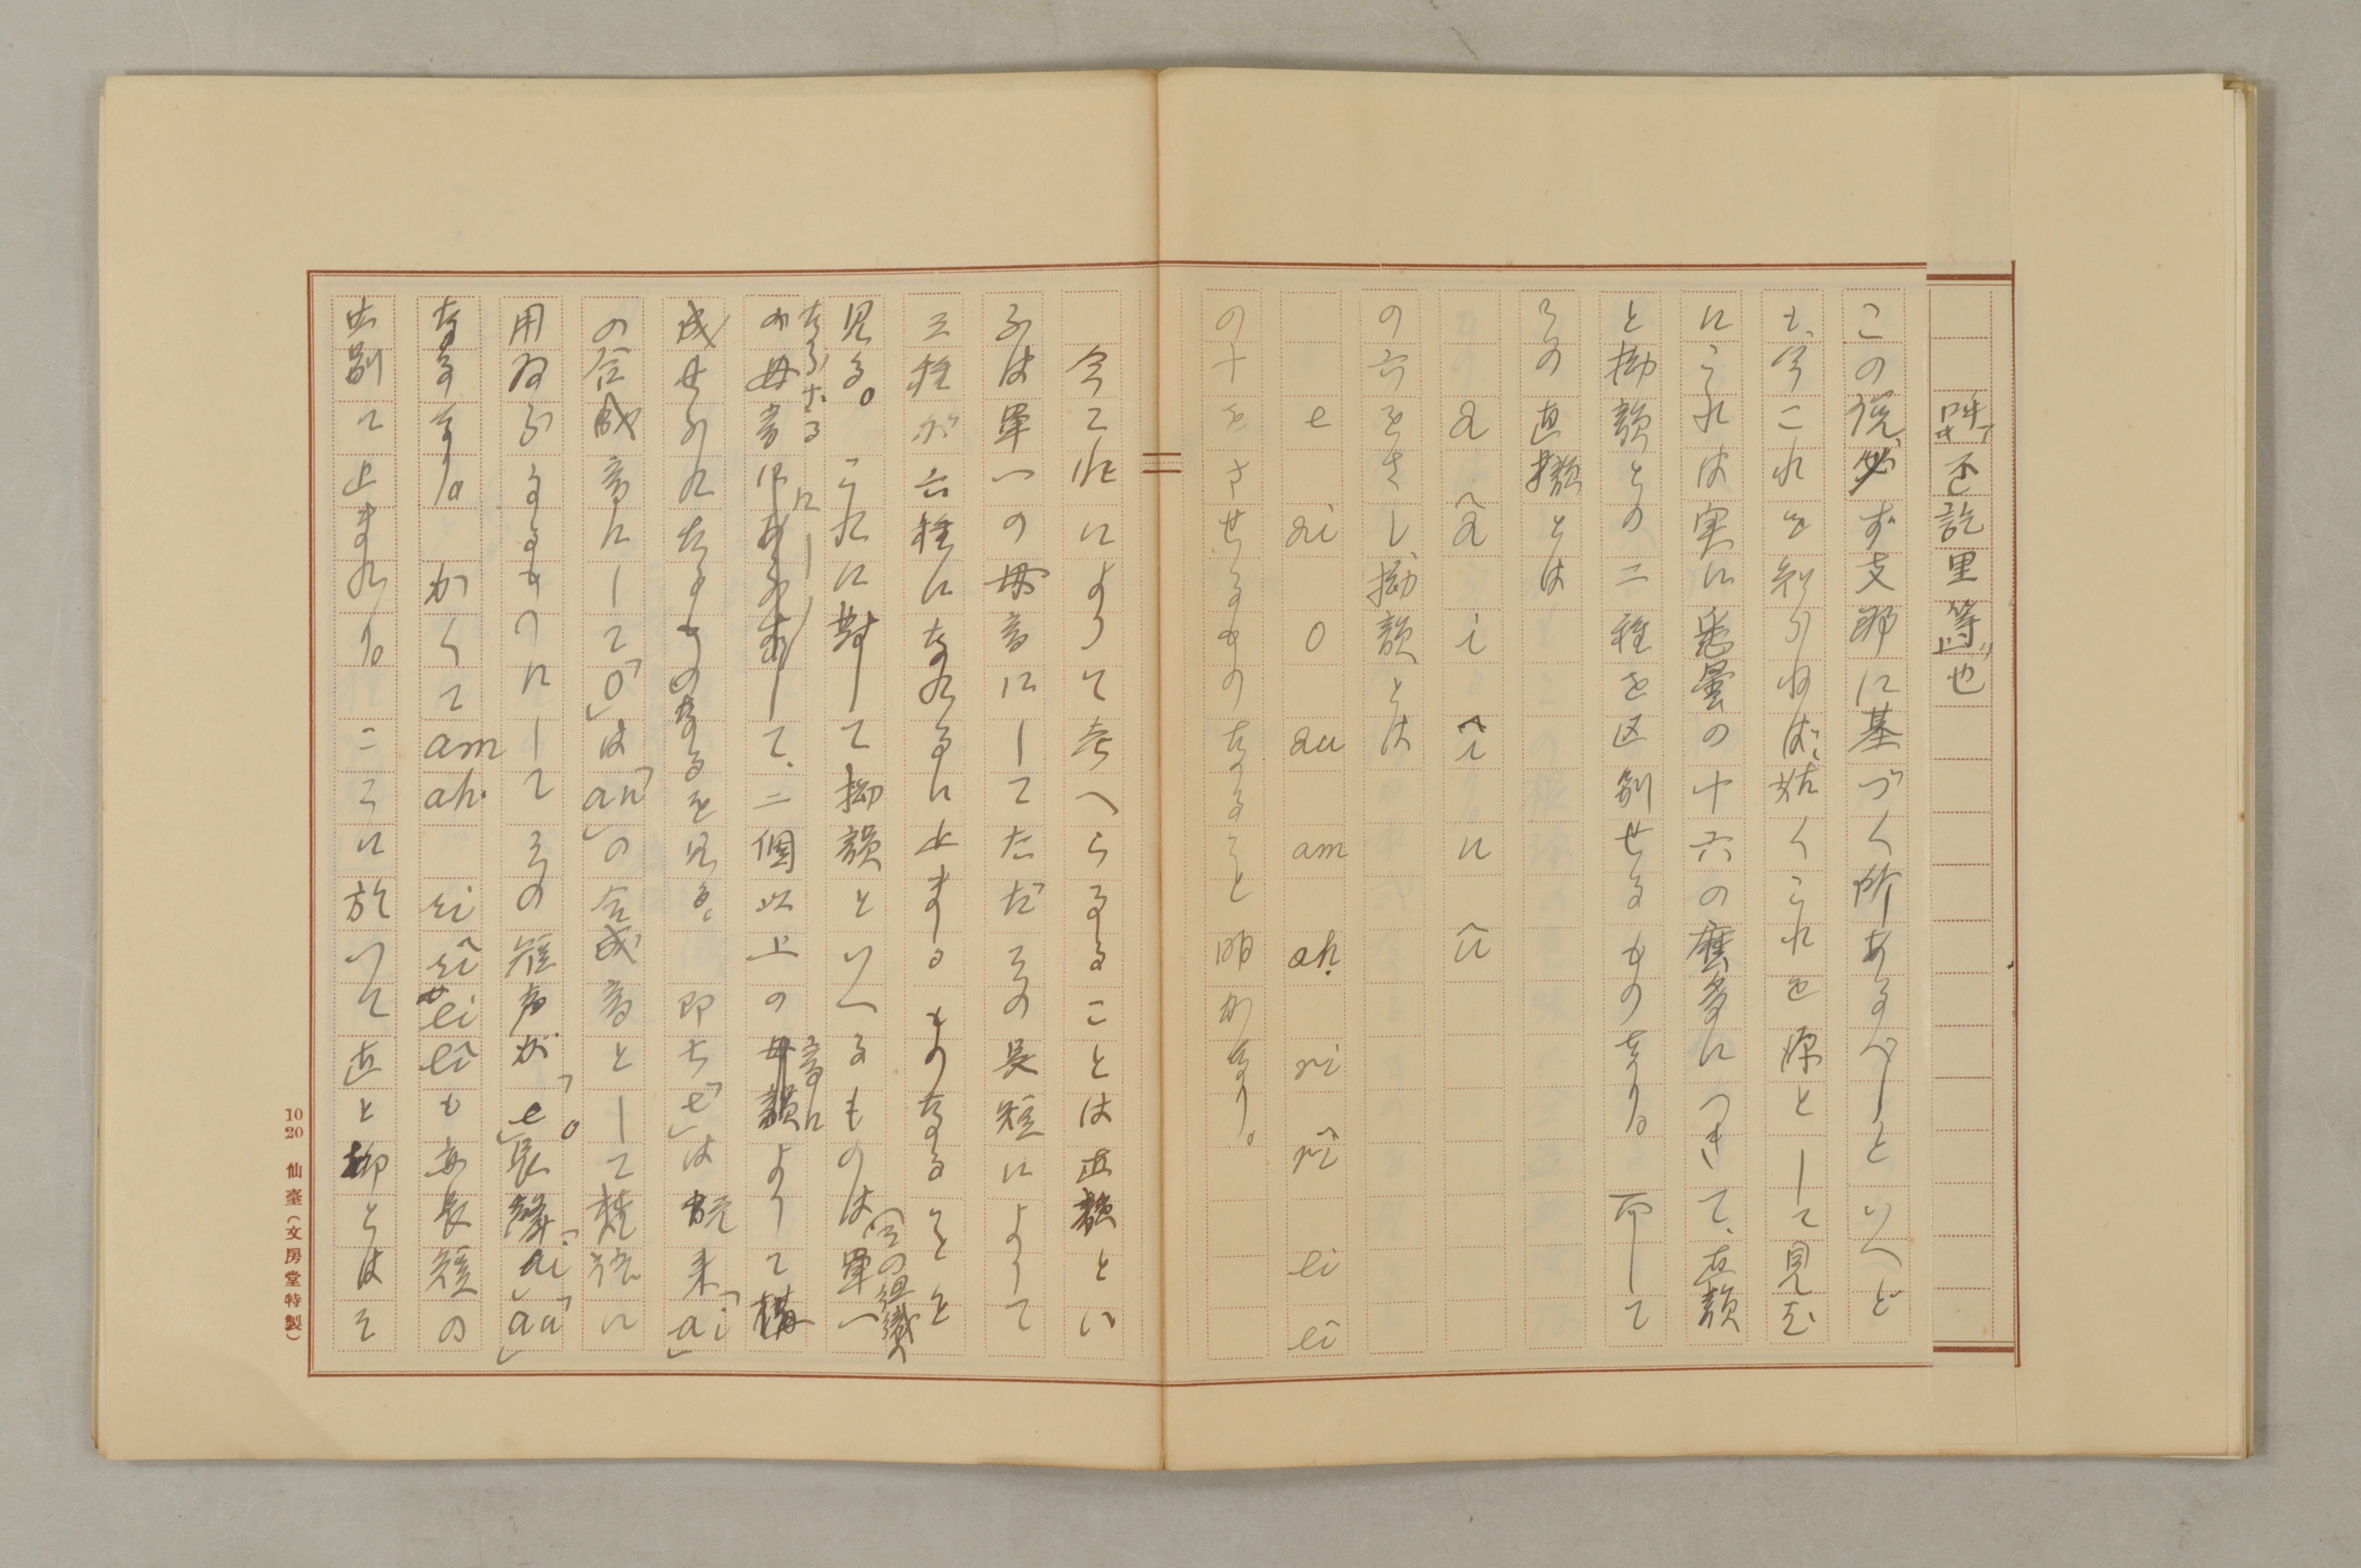 吽丕訖里等也
この説必ず支那に基づく所あるべしといへど
も、今これを知らねば、姑くこれを源として見む
にこれは実に悉曇の十六の摩多につきて、直韻
と拗韻との二種を区別せるものなり。而して
その直韻とは
a â i î u û
の六をさし、拗韻とは
e ai o au am aḥ ṛi ṛî ḷi ḷî
の十をさせるものなること明かなり。
今之れによつて考へらるることは直韻とい
ふは単一の母音にしてただその長短によりて
三種が六種になれるに止まるものなることを
見る。これに対して拗韻といへるものは(その組織の)単一
ならざる母音にして、二個以上の母音によりて構
成せられたるものなるを見る。即ち「e」は元来「ai」
の合成音にして「o」は「au」の合成音として梵語に
用ゐらるるものにしてその短声が「e」「o」長声「ai」「au」
なるなり。かくて am aḥ ṛi ṛî ḷi ḷî も亦長短の
区別に止まれり。ここに於いて直と拗とはそ
10 20 仙臺(文房堂特製)